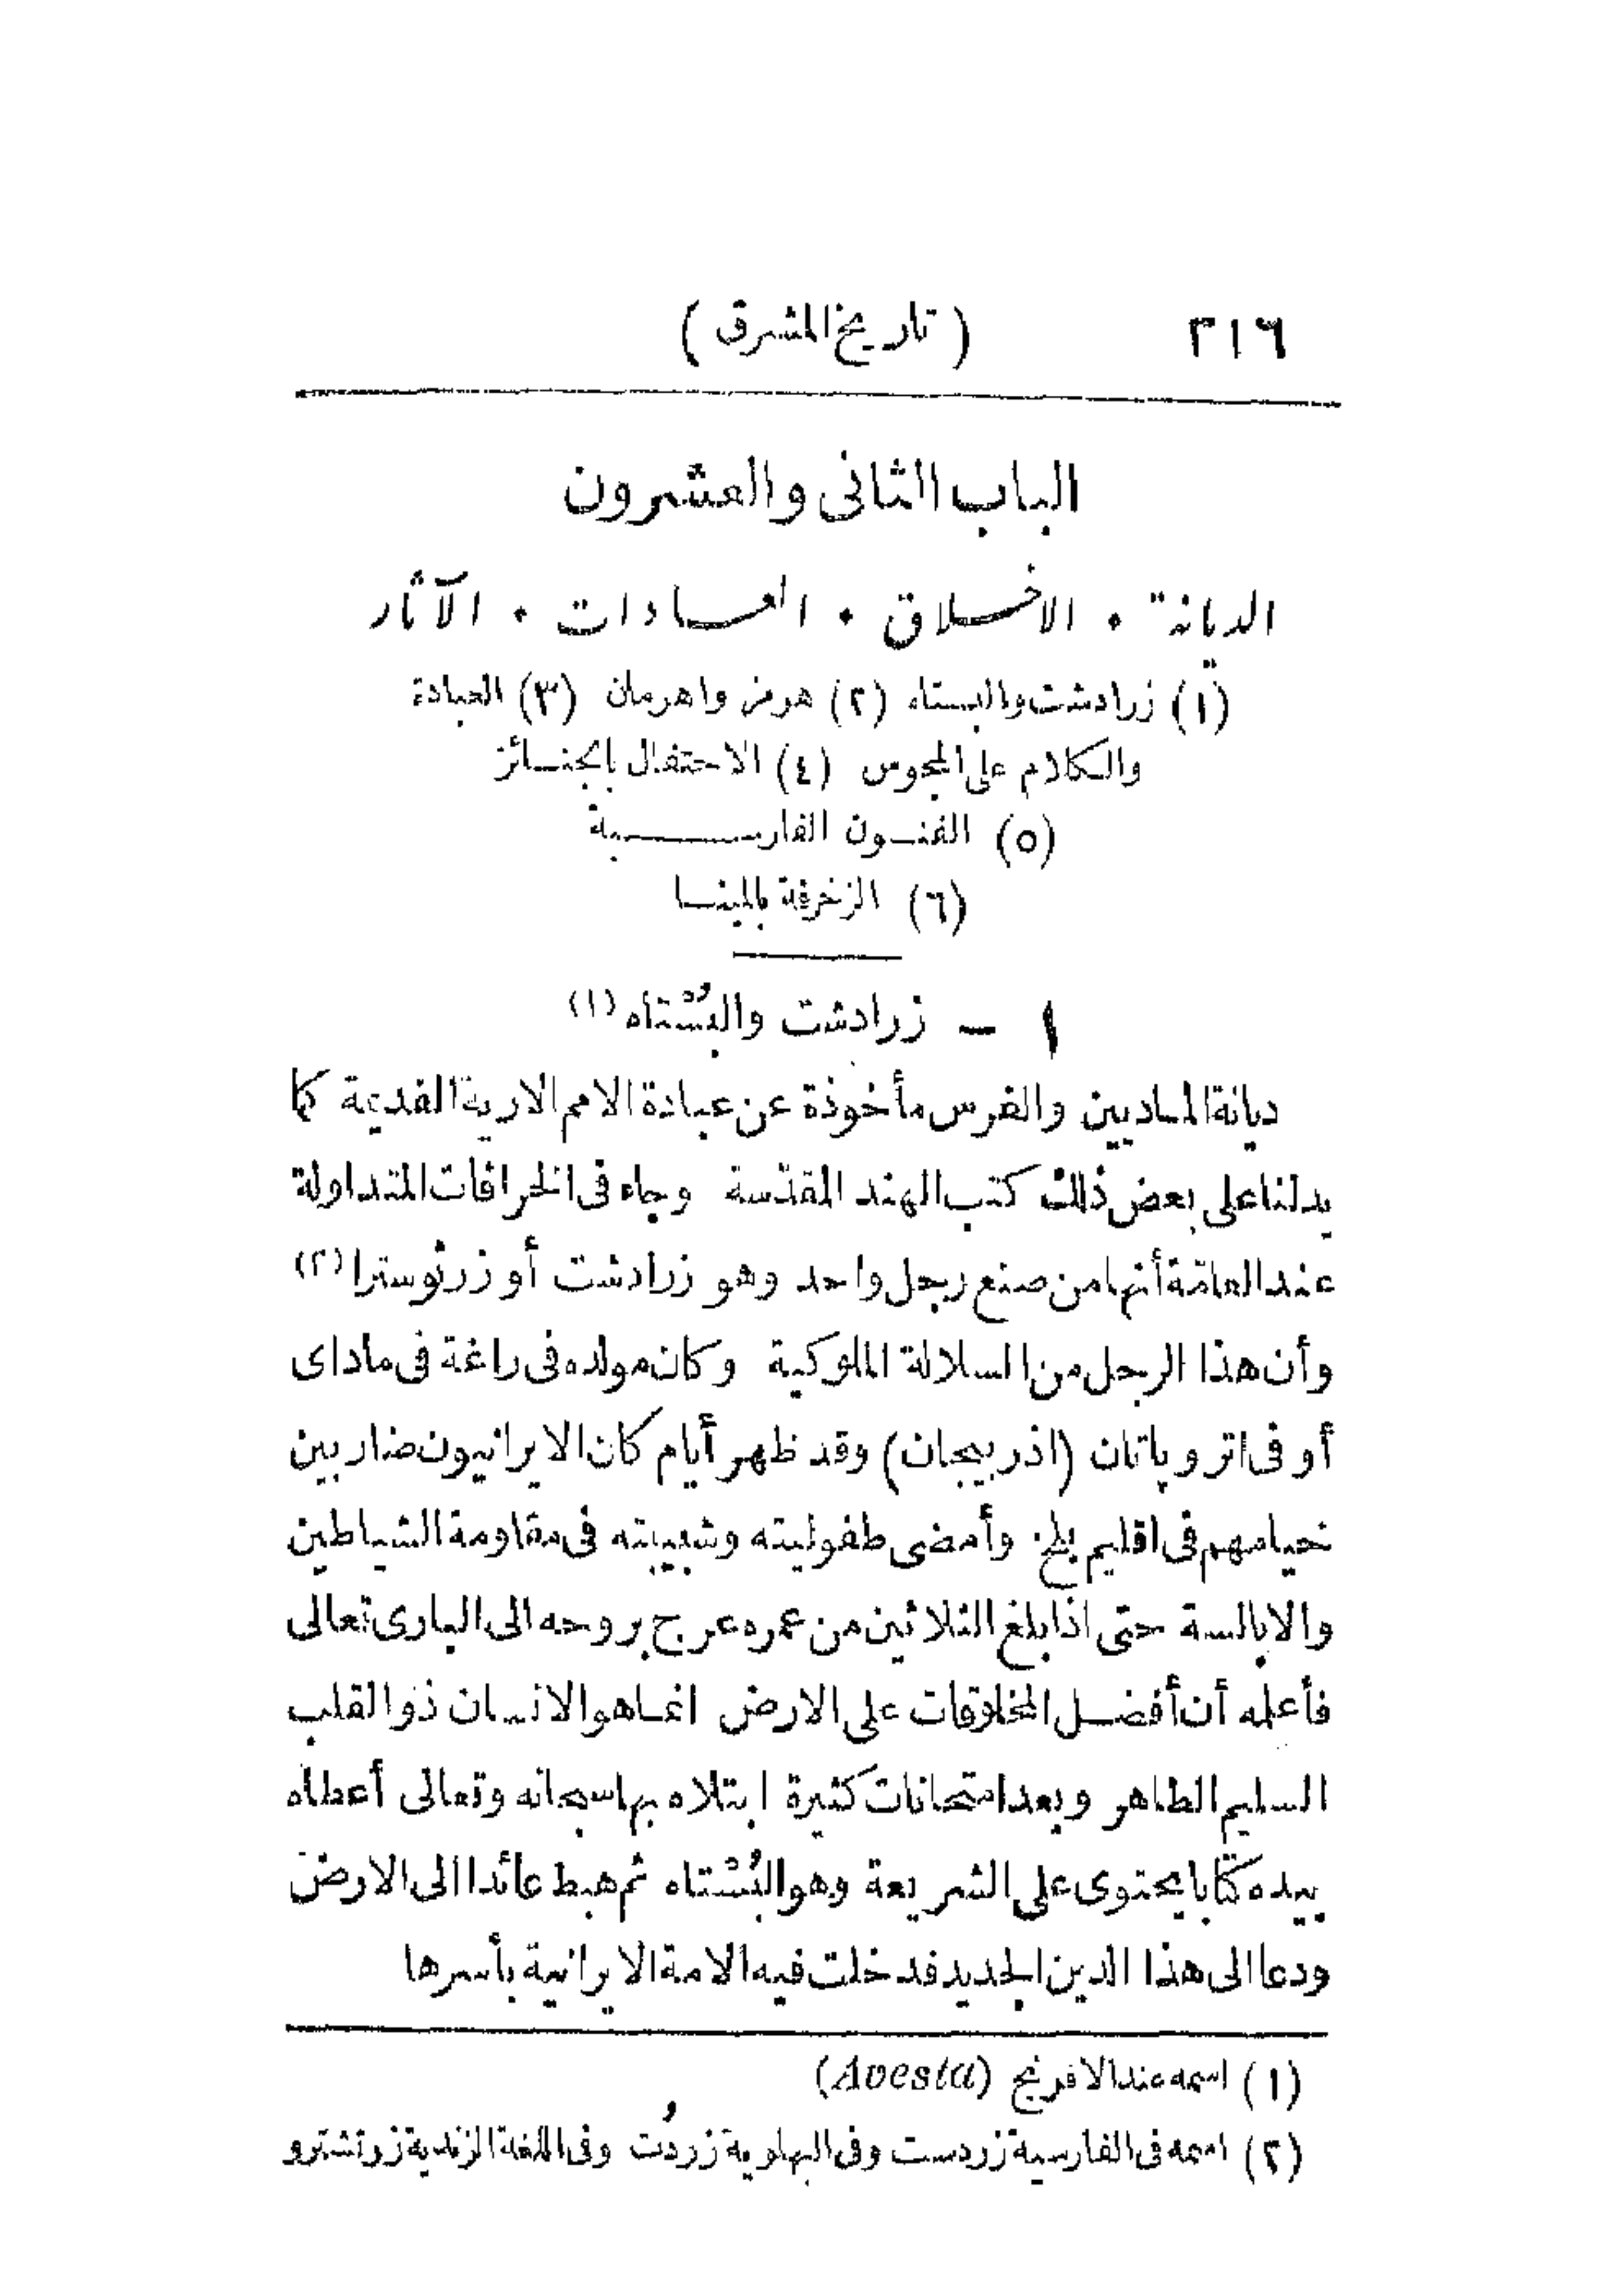 ٣١٦ ( تاريخ المشرق )
الباب الثانى والعشرون
الديانة • الاخـلاق • العـادات • الآثار
(١) زرادشت والبستاه (٢) هرمز واهرمان (٣) العبادة
والكلام على المجوس (٤) الاحتفال بالجنـائز
(٥) الفنـون الفارسـية
(٦) الزخرفة بالمينـا
١ — زرادشت والبُسْتاه (١)
ديانة الماديين والفرس مأخوذة عن عبادة الامم الارية القديمة كما
يدلنا على بعض ذلك كتب الهند المقدّسة وجاء فى الخرافات المتداولة
عند العامّة أنها من صنع رجل واحد وهو زرادشت أو زرثوسترا (٢)
وأن هذا الرجل من السلالة الملوكية وكان مولده فى راغة فى ماداى
أو فى اتروباتان (اذربيجان) وقد ظهر أيام كان الايرانيون ضاربين
خيامهم فى اقليم بلخ وأمضى طفوليته وشبيبته فى مقاومة الشياطين
والابالسة حتى اذا بلغ الثلاثين من عمره عرج بروحه الى البارى تعالى
فأعلمه أن أفضـل المخلوقات على الارض انمـا هو الانسان ذو القلب
السليم الطاهر وبعد امتحانات كثيرة ابتلاه بها سبحانه وتعالى أعطاه
بيده كتابا يحتوى على الشريعة وهو البُسْتاه ثم هبط عائدا الى الارض
ودعا الى هذا الدين الجديد فدخلت فيه الامة الايرانية بأسرها
(١) اسمه عند الافرنج (Avesta)
(٢) اسمه فى الفارسية زردست وفى البهلوية زردُت وفى اللغة الزندية زرتشترو